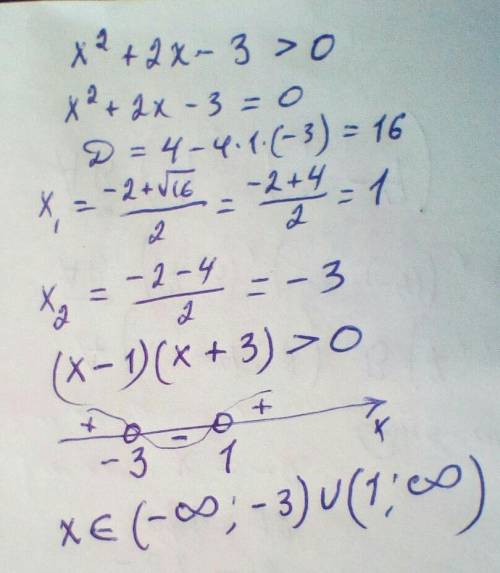 x² + 2x - 3 > 0
x² + 2x - 3 = 0
D = 4 - 4·1·(-3) = 16
x₁ = (-2+√16)/2 = (-2+4)/2 = 1
x₂ = (-2-4)/2 = -3
(x-1)(x+3) > 0
+ - + x
-3 1
x ∈ (-∞; -3) ∪ (1; ∞)